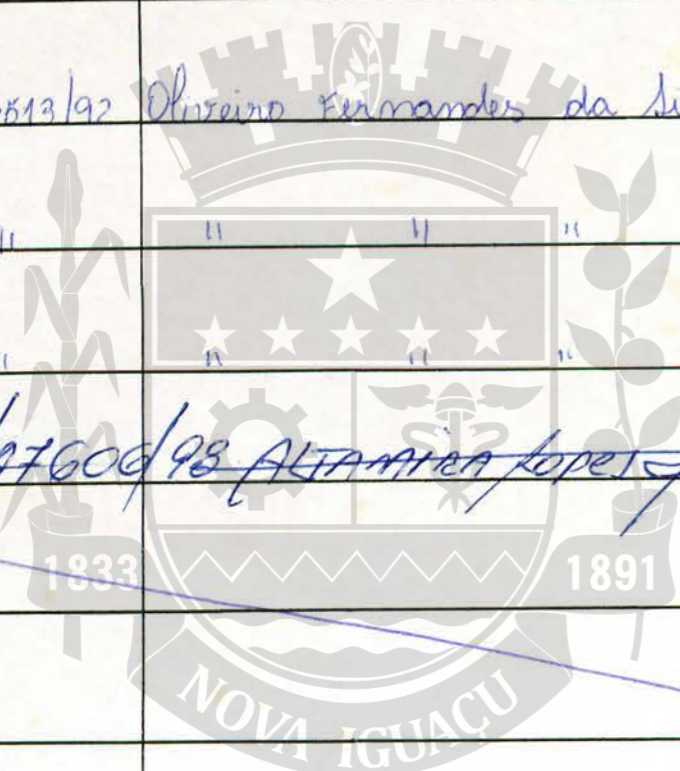 513/92 Oliveiro Fernandes da Si
" " " "
" " " "
17606/98 ALTAMIRA Lopes
1833 1891
NOVA IGUAÇU